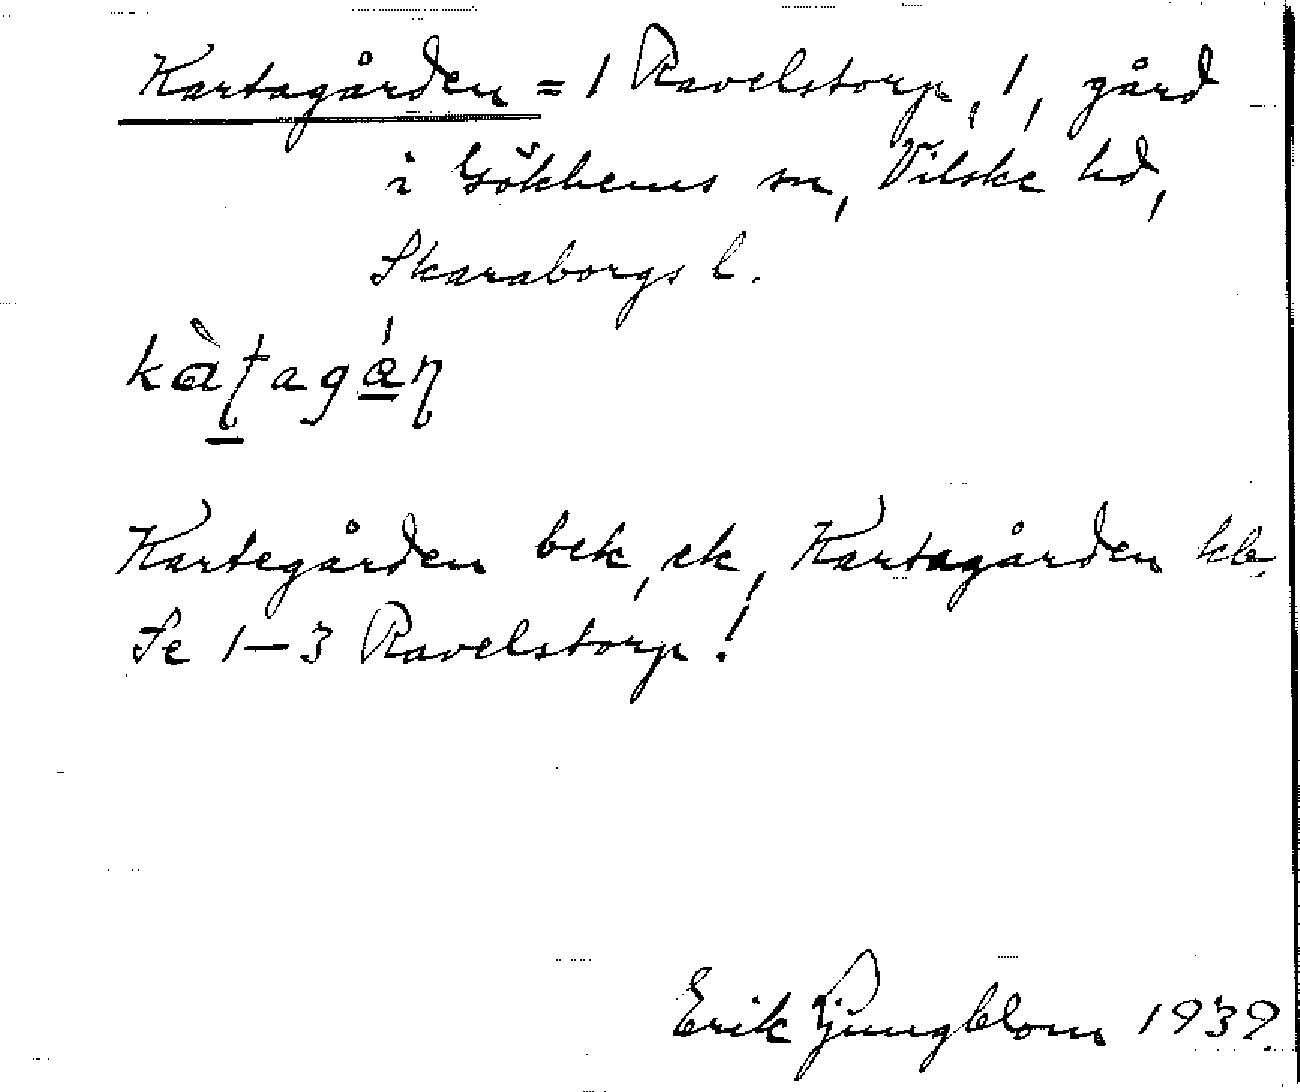 Kartagården = 1 Ravelstorp, 1, gård
i Gökhems sn, Vilske hd,
Skaraborgs l.
kàʈagǻɳ
Kartegården bek, ek, Kartagården kb.
Se 1–3 Ravelstorp!
Erik Ljungblom 1939.